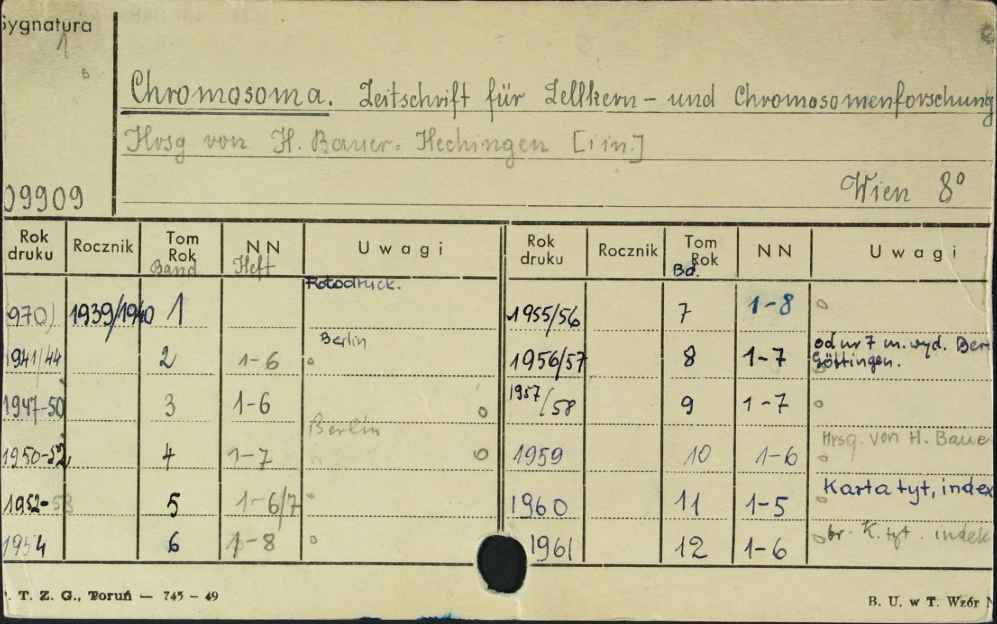 Sygnatura
1
B
Chromosoma. Zeitschrift für Zellkern- und Chromosomenforschung
Hrsg von H. Bauer-Hechingen [i in.]
09909 Wien 8°
Rok druku Rocznik Tom Rok Band NN Heft Uwagi Rok druku Rocznik Tom Rok Bd. NN Uwagi
Fotodruck.
970) 1939/1940 1 1955/56 7 1-8
1941/44 2 1-6 Berlin 1956/57 8 1-7 od nr 7 m. wyd. Ber
Göttingen.
1947-50 3 1-6 1957/58 9 1-7
1950-52 4 1-7 Berlin 1959 10 1-6 Hrsg. von H. Baue
1952-53 5 1-6/7 1960 11 1-5 Karta tyt, index
1954 6 1-8 1961 12 1-6 br. K. tyt. indek
. T. Z. G., Toruń — 745 - 49 B. U. w T. Wzór N